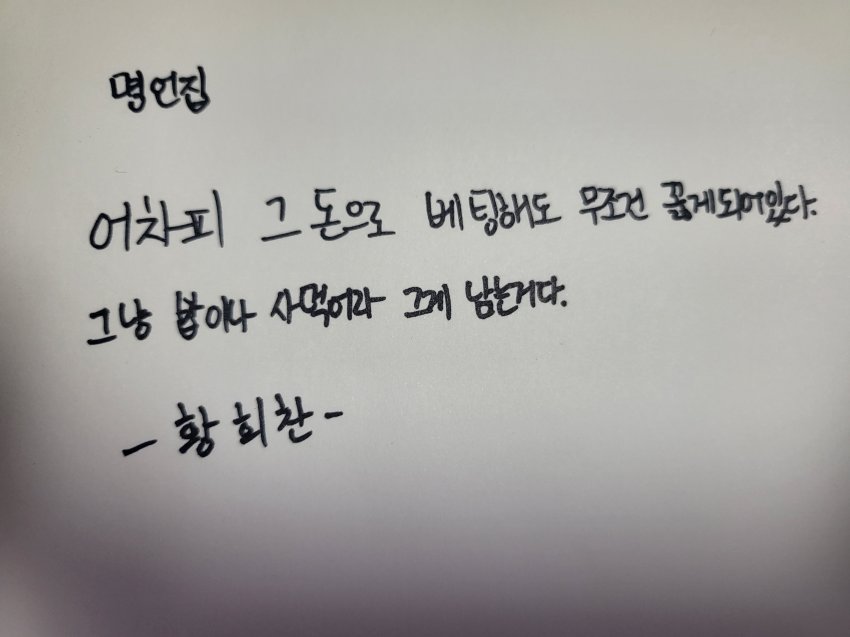 명언집
어차피 그 돈으로 베팅해도 무조건 꼻게되어있다.
그냥 밥이나 사먹어라 그게 남는거다.
- 황희찬 -